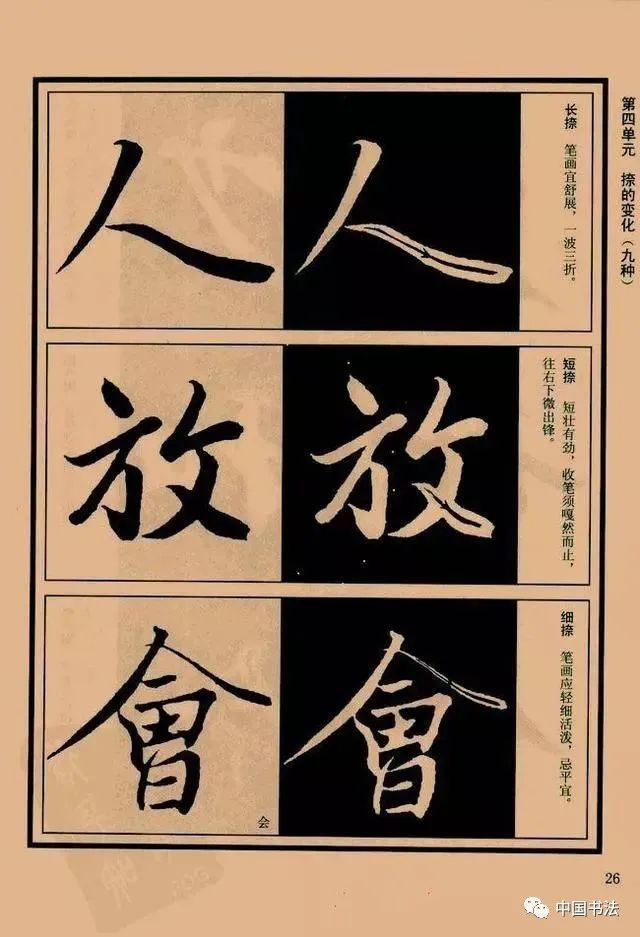 第四单元 捺的变化（九种）
长捺 笔画宜舒展，一波三折。
人人
短捺 短壮有劲，收笔须嘎然而止，
往右下微出锋。
放放
细捺 笔画应轻细活泼，忌平宜。
會會
会
26
中国书法